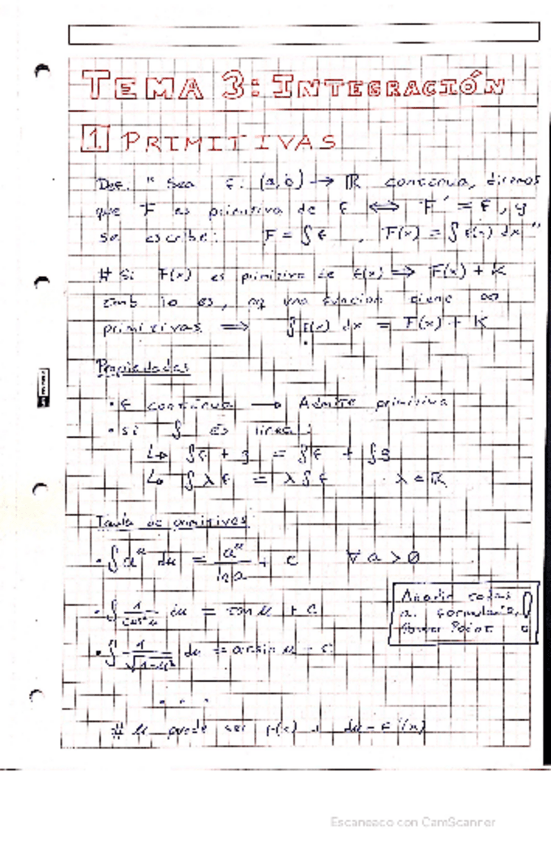 TEMA 3: INTEGRACIÓN
1 PRIMITIVAS
Def. " Sea f: (a,b) → ℝ continua, diremos
que F es primitiva de f ⟺ F' = f, y
se escribe: F = ∫f , F(x) = ∫f(x) dx "
# Si F(x) es primitiva de f(x) ⟹ F(x) + K
tmb lo es, una función tiene ∞
primitivas ⟹ ∫f(x) dx = F(x) + K
Propiedades
• f continua → Admite primitiva
• si ∫ es lineal:
↳ ∫f + g = ∫f + ∫g
↳ ∫λf = λ∫f λ ∈ ℝ
Taula de primitives
• ∫a^u du = a^u/ln a + c ∀ a > 0
• ∫ 1/cos²u du = tan u + c
Añadir todas
a formulario,
Power Point
• ∫ 1/√(1-u²) du = arcsin u + c
. . .
# u puede ser f(x) du = f'(x)
Escaneado con CamScanner